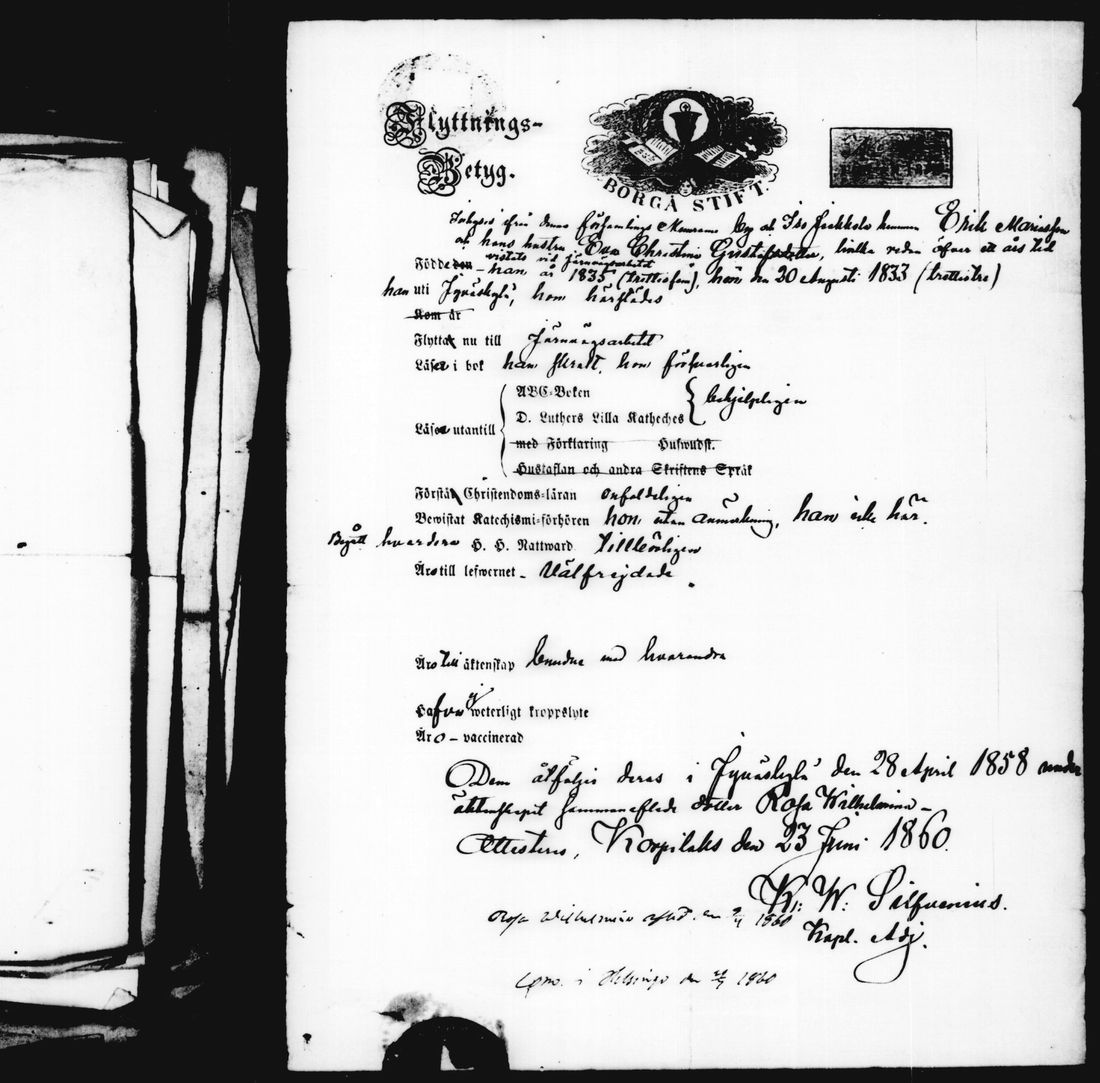 Flyttnings-
Betyg.
BORGÅ STIFT.
Inhyses ifrån denna församlings by och Iso hemman Erik Mariasson
och hans hustru Eva Christina Gustafsdotter, hvilka redan öfver ett års tid
vistats vid järnvägsarbetet
Födde den - han år 1835 (trettiofem), hon den 20 Augusti 1833 (trettiotre)
han uti Jyväskylä, hon härstädes
Kom år
Flytta nu till Järnvägsarbetet
Läsa i bok han svagt, hon försvarligen
ABC-Boken
D. Luthers Lilla Katheches behjelpligen
Läsa utantill
med Förklaring Huswudst.
Hustaflan och andra Skriftens Språk
Förstå Christendoms-läran enfaldeligen
Bewistat Katechismi-förhören hon utan anmärkning, han icke här.
Begått hvardera H. H. Nattward tillbörligen
Äro till lefwernet - Välfrejdade
Äro till äktenskap bundne med hvarandra
Hafva ej weterligt kroppslyte
Äro - vaccinerad
Dem åtföljer deras i Jyväskylä den 28 April 1858 under
äktenskapet sammanaflade dotter Rosa Wilhelmina -
Attesteras, Korpilaks den 23 Juni 1860.
K: W: Silfvenius.
Kapl. Adj.
Rosa Wilhelmina 1860
i Helsinge den 1860